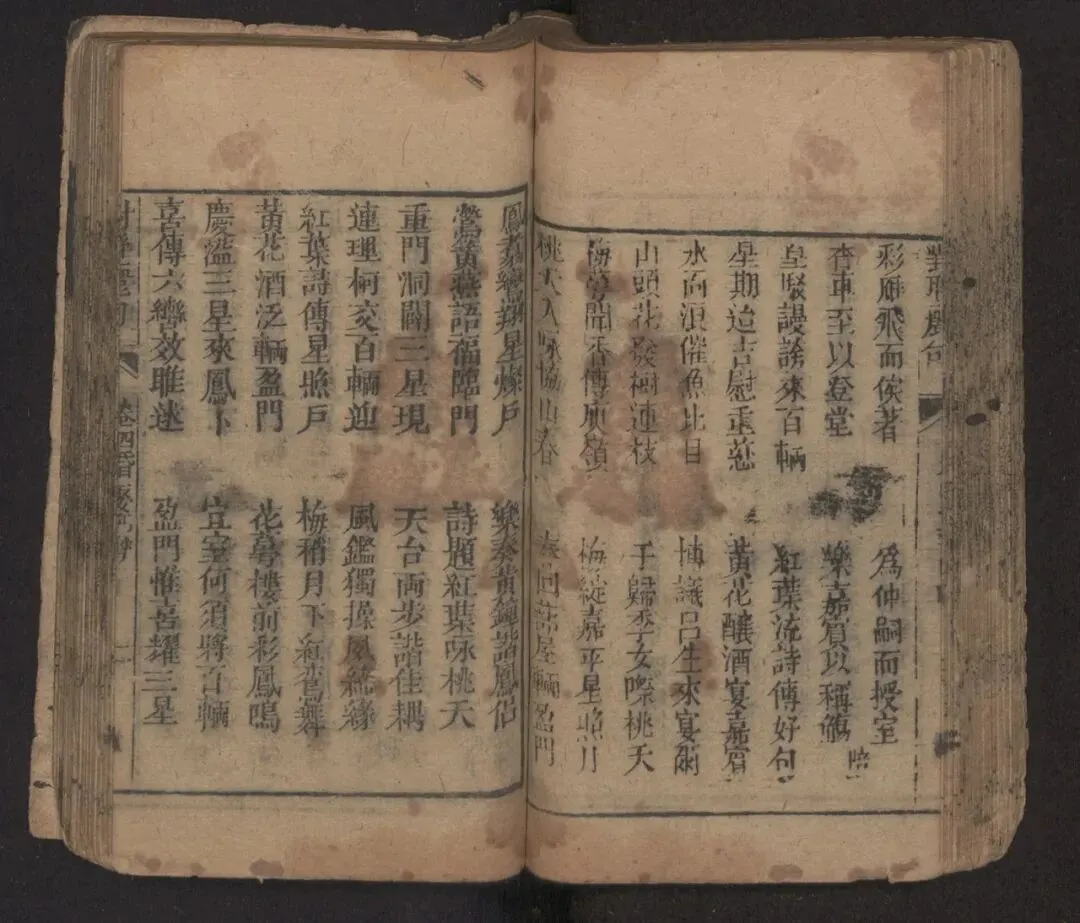 彩雁飛而俟著　為仲嗣而授室
香車至以登堂　樂嘉賓以稱觴
皇駁謾誇來百輛　紅葉流詩傳好句
星期迨吉慰重慈　黃花釀酒宴嘉賓
水面浪催魚比目　博議呂生來宴爾
山頭花發樹連枝　于歸季女際桃夭
梅萼開香傳庾嶺　梅綻嘉平星照月
桃夭入咏協山春　春回蔀屋輛盈門
鳳翥鸞翔星燦戶　樂奏黃鐘諧鳳侶
鶯簧燕語福臨門　詩題紅葉咏桃夭
重門洞闢三星現　天台兩步諧佳耦
連理柯交百輛迎　風鑑獨操夙締緣
紅葉詩傳星照戶　梅稍月下紅鸞舞
黃花酒泛輛盈門　花萼樓前彩鳳鳴
慶溢三星來鳳卜　宜室何須將百輛
喜傳六轡效雎逑　盈門惟喜耀三星
卷四